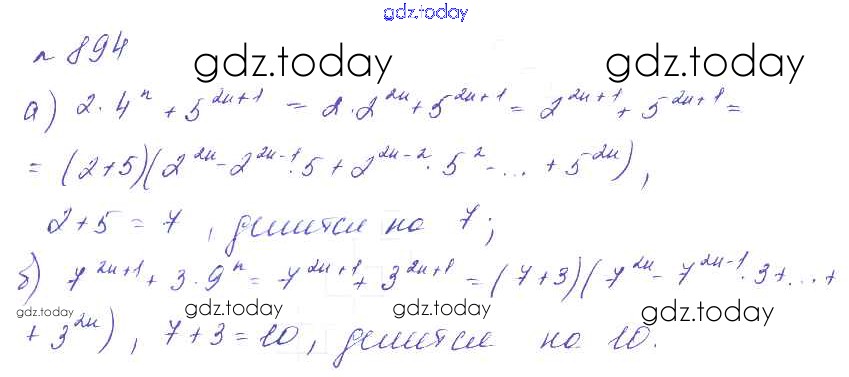 gdz.today
№ 894
gdz.today gdz.today
а) 2·4ⁿ + 5²ⁿ⁺¹ = 2·2²ⁿ + 5²ⁿ⁺¹ = 2²ⁿ⁺¹ + 5²ⁿ⁺¹ =
= (2+5)(2²ⁿ - 2²ⁿ⁻¹·5 + 2²ⁿ⁻²·5² - ... + 5²ⁿ),
2+5 = 7, делится на 7;
б) 7²ⁿ⁺¹ + 3·9ⁿ = 7²ⁿ⁺¹ + 3²ⁿ⁺¹ = (7+3)(7²ⁿ - 7²ⁿ⁻¹·3 + ... +
gdz.today gdz.today gdz.today gdz.today
+ 3²ⁿ), 7+3 = 10, делится на 10.